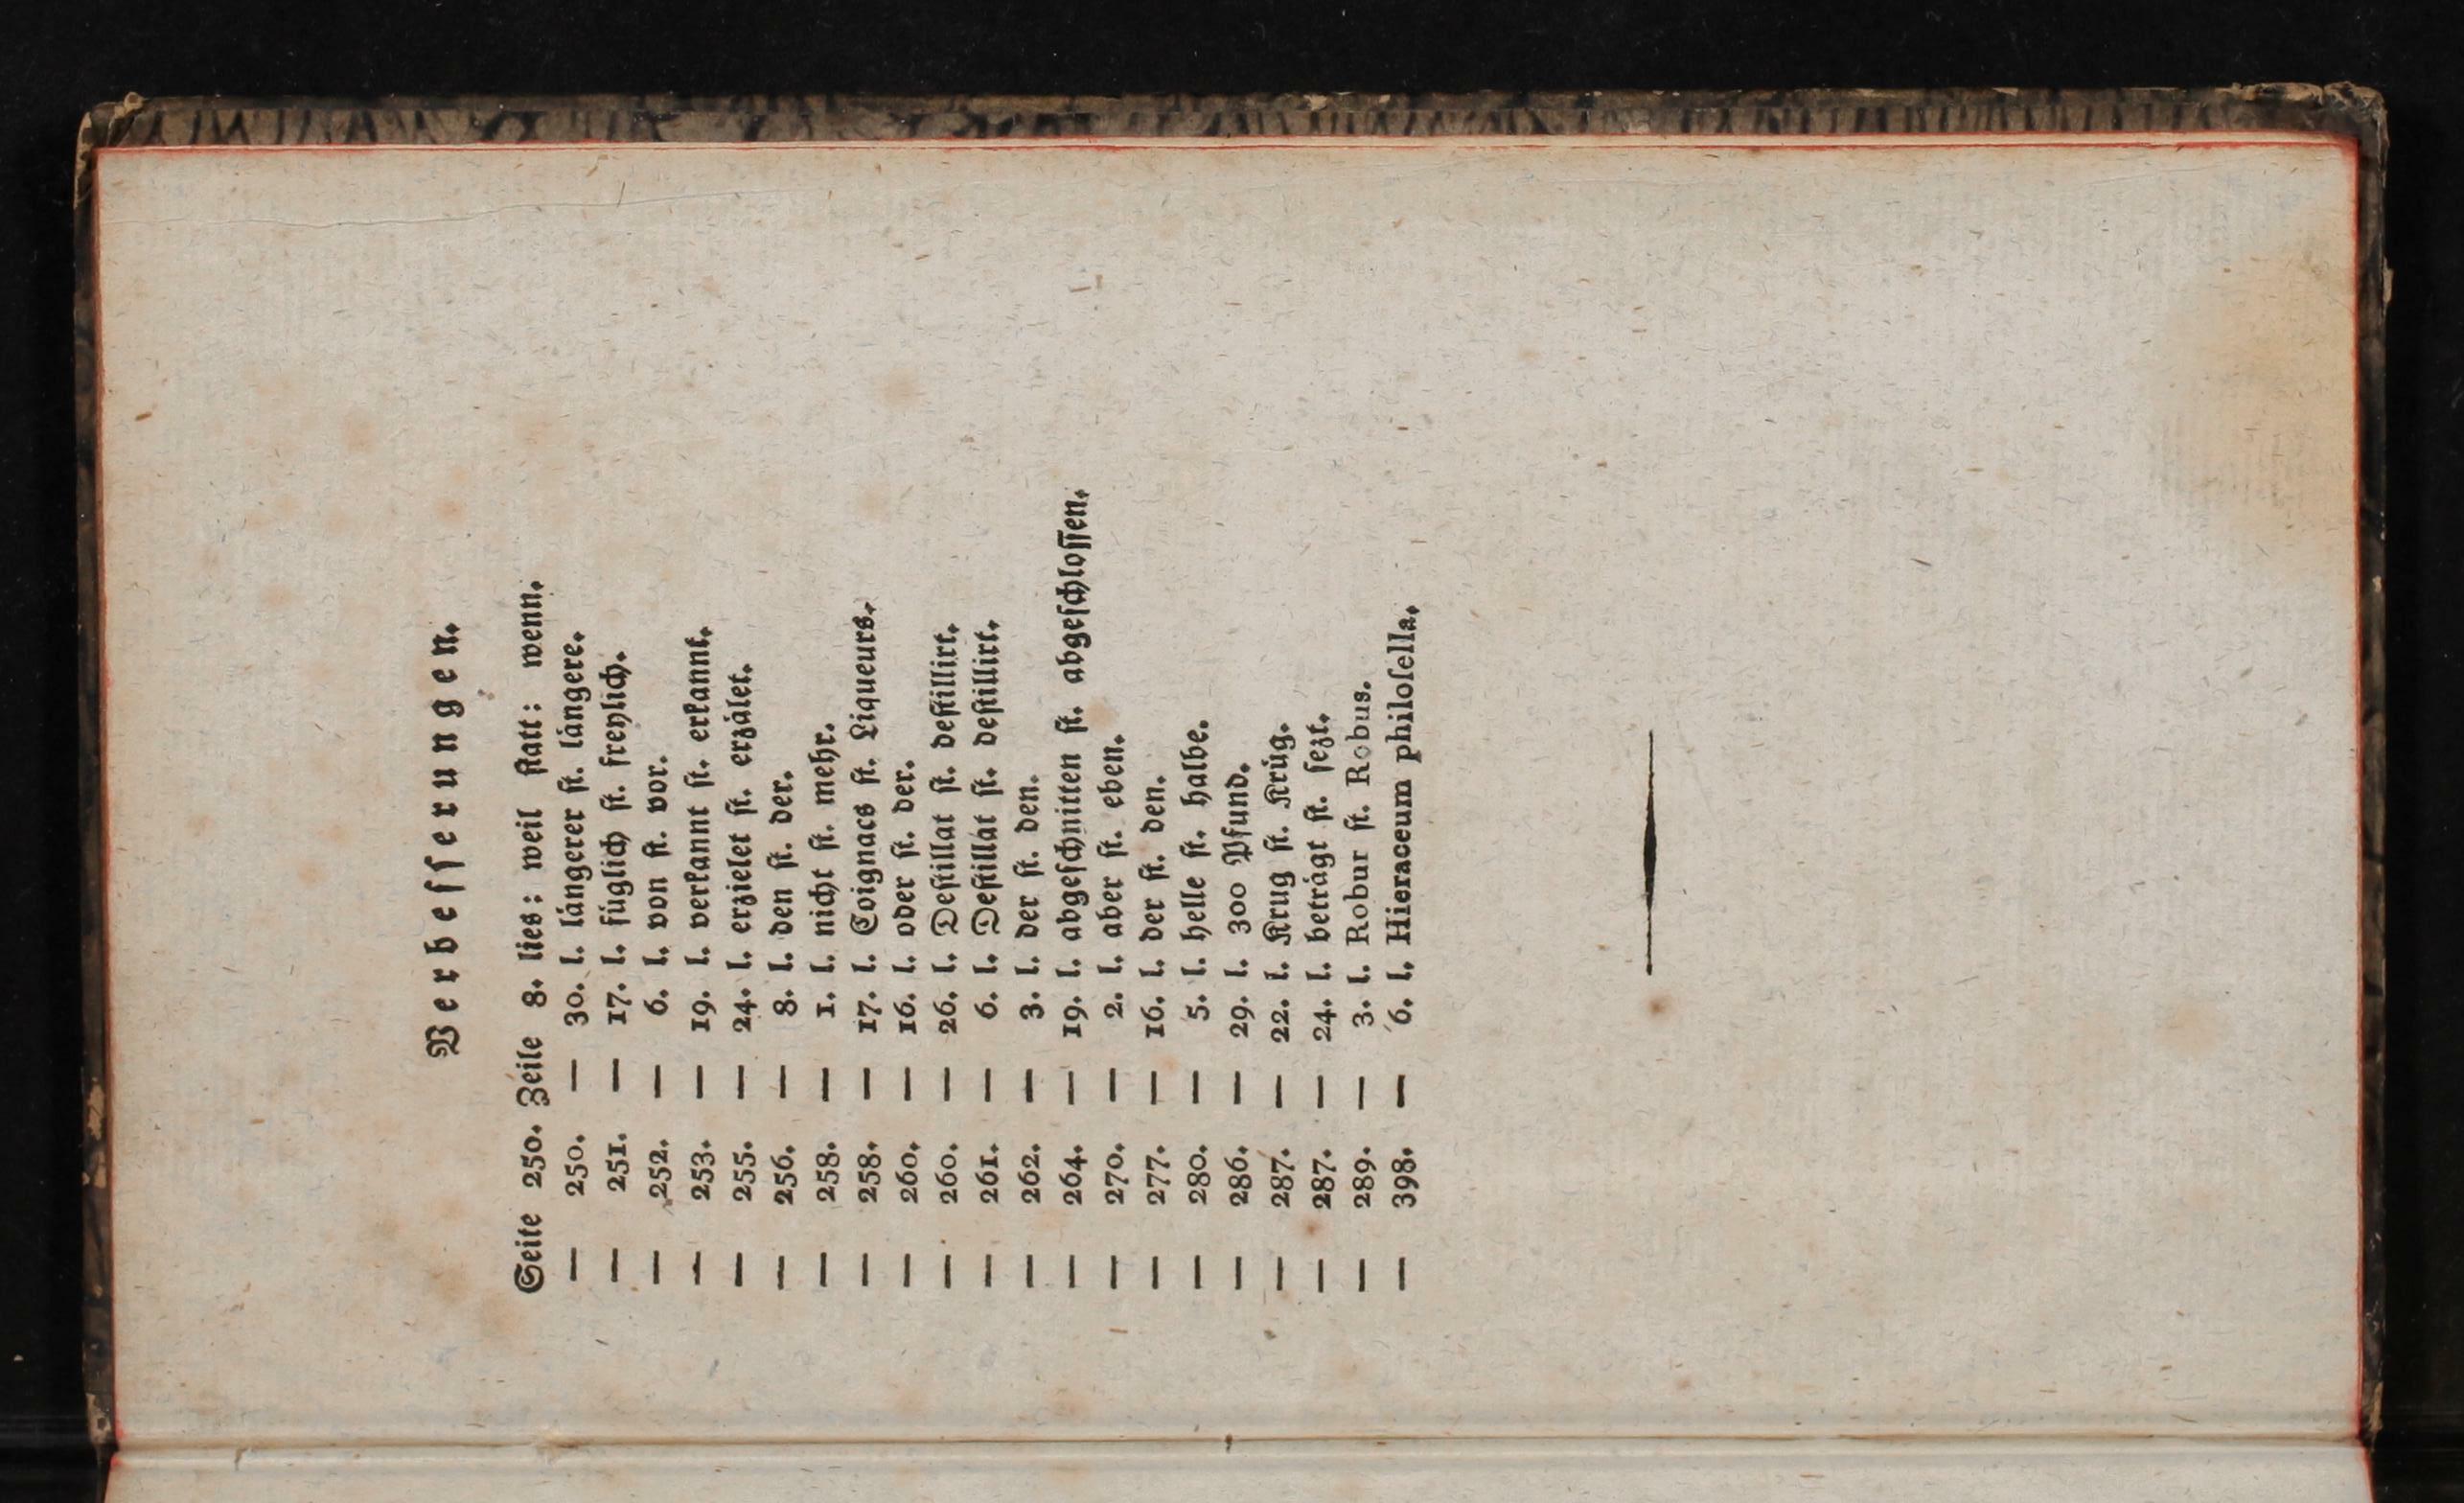 Verbeſſerungen.
Seite 250. Zeile 8. lies: weil ſtatt: wenn.
— 250. — 30. l. längerer ſt. längere.
— 251. — 17. l. füglich ſt. freylich.
— 252. — 6. l. von ſt. vor.
— 253. — 19. l. verkannt ſt. erkannt.
— 255. — 24. l. erzielet ſt. erzälet.
— 256. — 8. l. den ſt. der.
— 258. — 1. l. nicht ſt. mehr.
— 258. — 17. l. Coignacs ſt. Liqueurs.
— 260. — 16. l. oder ſt. der.
— 260. — 26. l. Deſtillat ſt. deſtillirt.
— 261. — 6. l. Deſtillat ſt. deſtillirt.
— 262. — 3. l. der ſt. den.
— 264. — 19. l. abgeſchnitten ſt. abgeſchloſſen.
— 270. — 2. l. aber ſt. eben.
— 277. — 16. l. der ſt. den.
— 280. — 5. l. helle ſt. halbe.
— 286. — 29. l. 300 Pfund.
— 287. — 22. l. Krug ſt. Krüg.
— 287. — 24. l. beträgt ſt. ſezt.
— 289. — 3. l. Robur ſt. Robus.
— 398. — 6. l. Hieraceum philoſella.